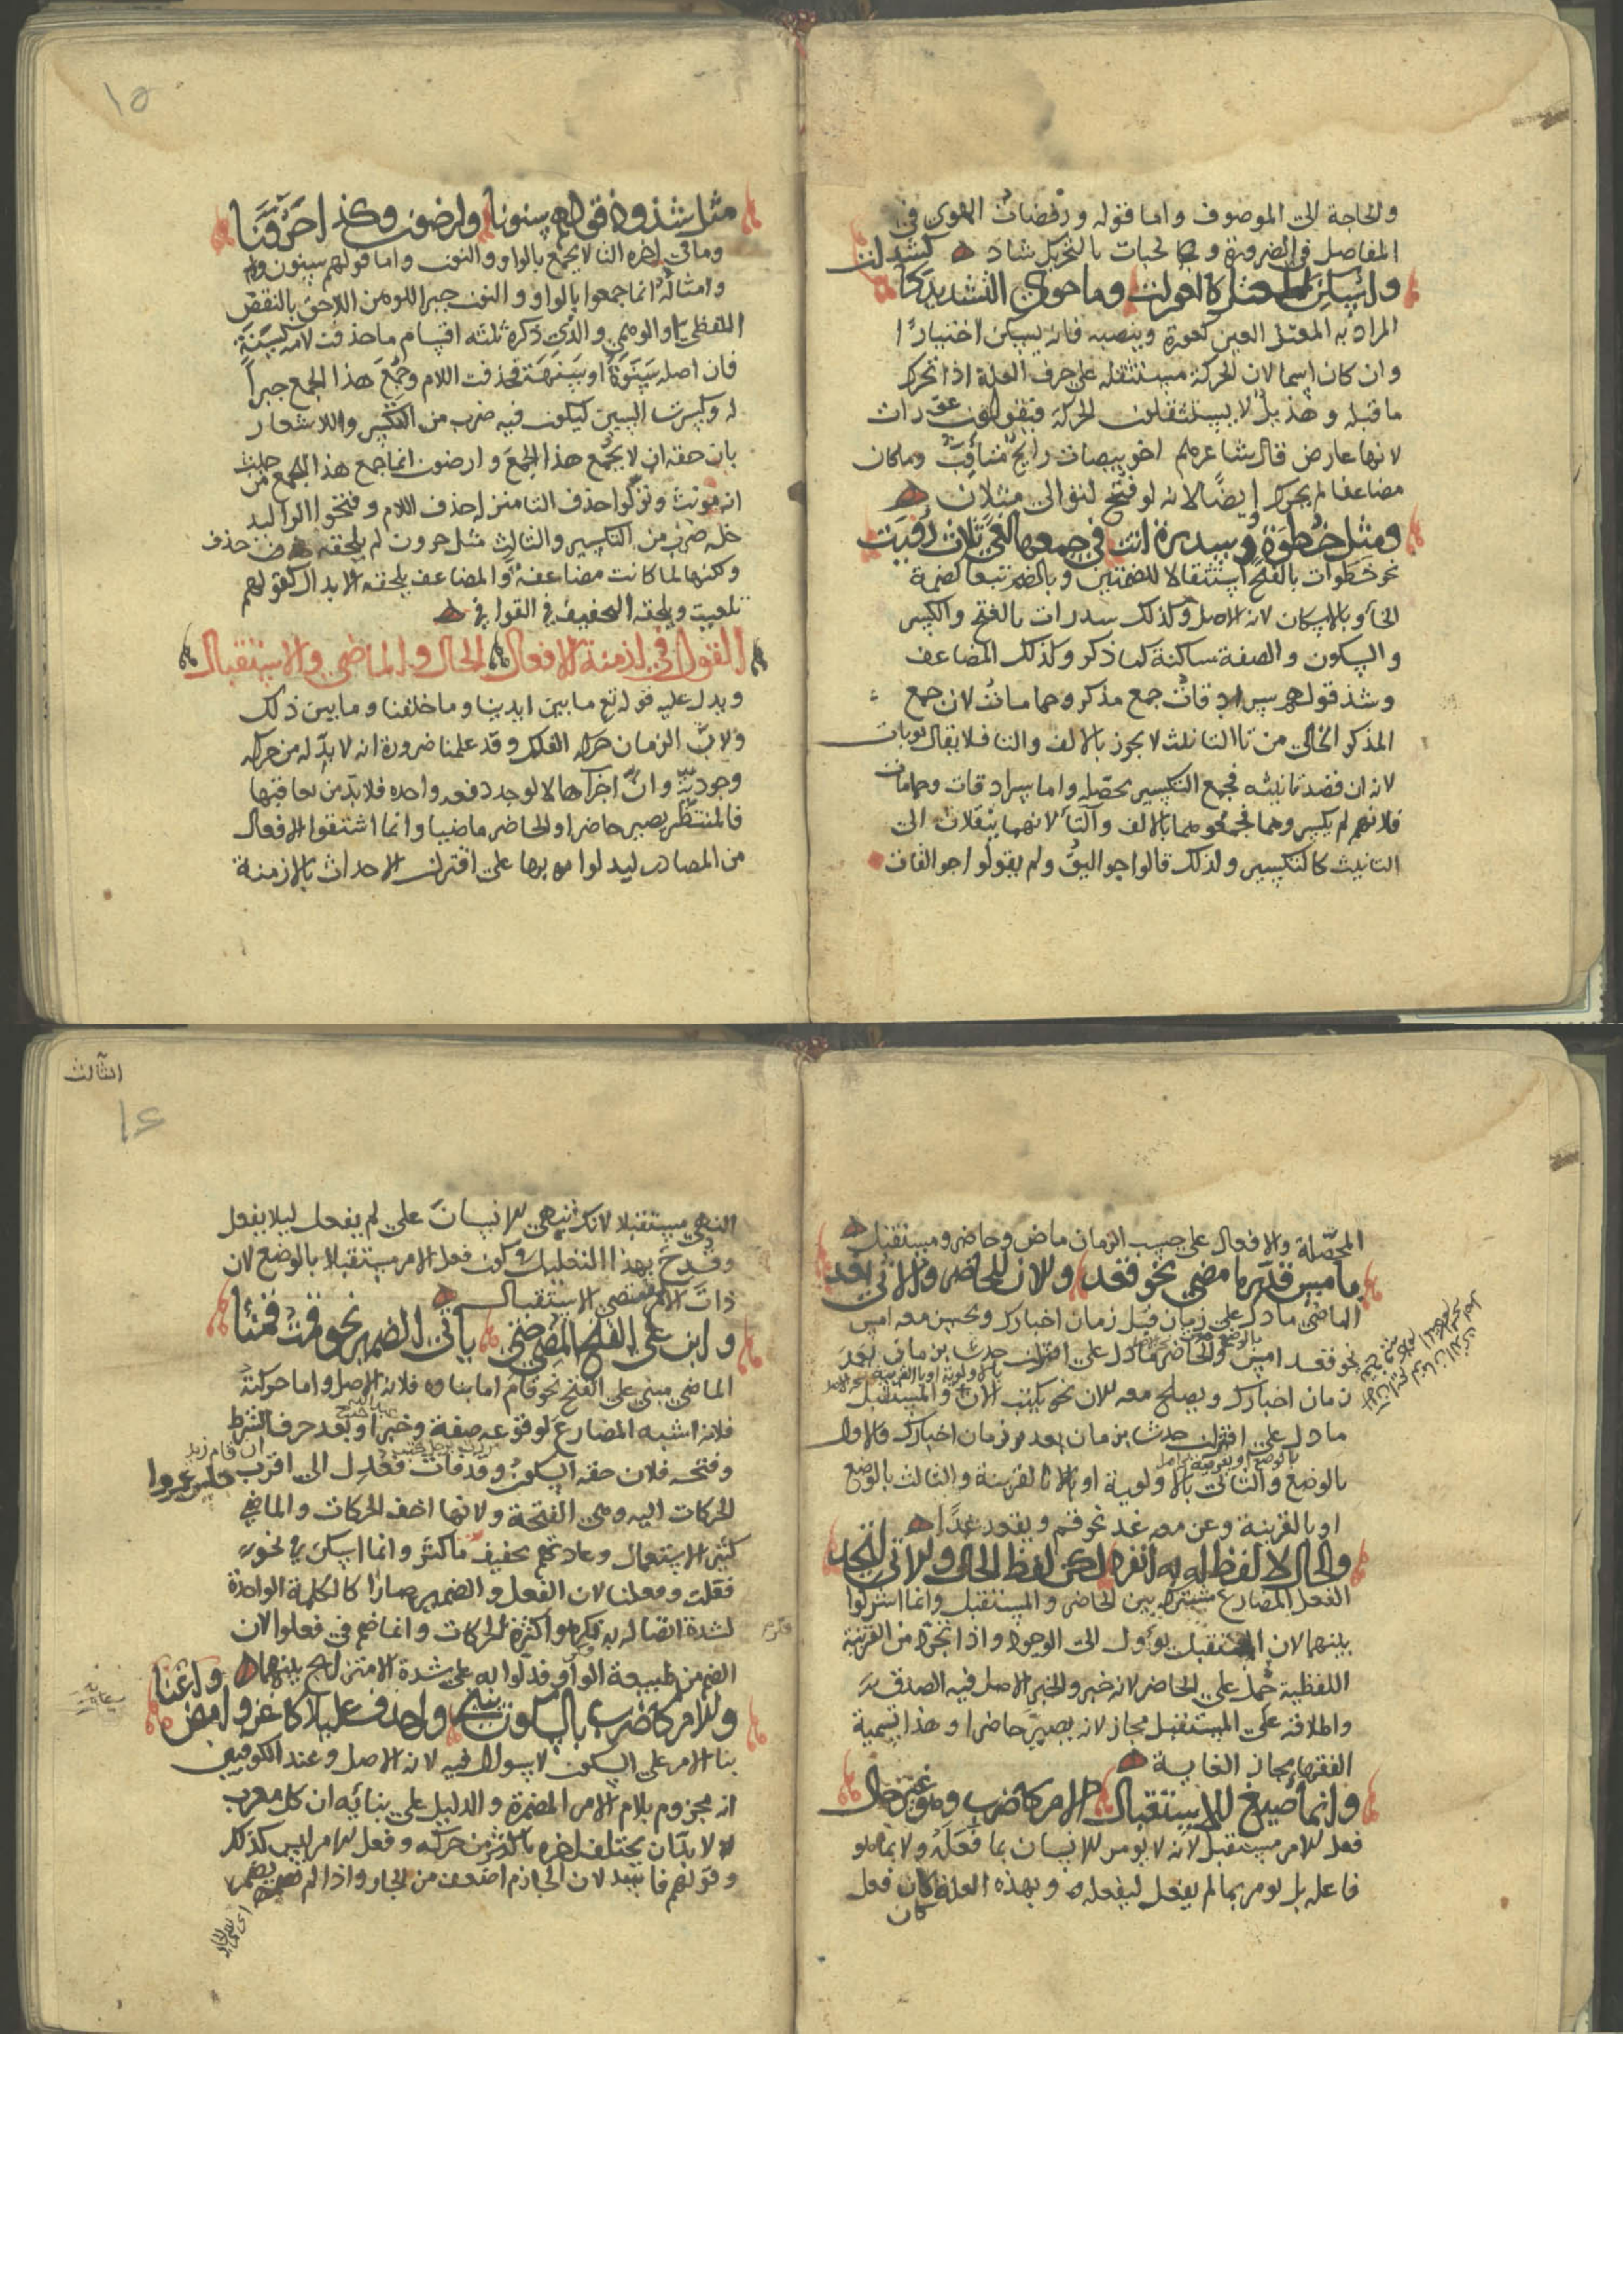 والحاجة الى الموصوف واما قوله ورفضات الهوى في
المفاصل في الضرورة و لحبات بالتحريك شاذ كشدان
واسكن المعتل كالعورات وما حوى التشديد كا
المراد به المعتل العين كعورة وبنصبه فانه يسكن اختيارًا
وان كان اسما لان الحركة مستثقله على حرف العلة اذا تحرك
ما قبله وهذيل لا يستثقلون الحركة فيقولون عورات
لانها عارض قال شاعرهم اخو بيضات رايح متأوب وما كان
مضاعفا لم يحرك ايضًا لانه لو فتح لتوالى مثلان
ومثل خطوة وسدرة اتت في جمعها لغى ثلاث رويت
نحو خطوات بالفتح استثقالا للضمتين وبالضم تبعا لضمة
الخاء وبالاسكان لانه الاصل وكذلك سدرات بالفتح والكسر
والسكون والصفة ساكنة كما ذكر وكذلك المضاعف
وشذ قولهم سرادقات جمع مذكر وحمامات لان جمع
المذكر الخالي من تا التانيث لا يجوز بالالف والتا فلا يقال ثوبات
لانه ان قصد تانيثه فجمع التكسير يحصله واما سرادقات وحمامات
فلانهم لم يكسروهما فجمعوهما بالالف والتا لانهما ينقلان الى
التانيث كالتكسير ولذلك قالوا جواليق ولم يقولوا جوالقات
١٥
مثل شذوذ قولهم سنونا وارضون وكذا حرونا
وما في اخره التا لا يجمع بالواو والنون واما قولهم سنون
وامثاله انما جمعوا بالواو والنون جبرا للوهن اللاحق بالنقص
اللفظي او الوهمي والذي ذكره ثلثه اقسام ما حذفت لامه كسنة
فان اصله سنوة او سنهة فحذفت اللام وجمع هذا الجمع جبرا
له وكسرت السين ليكون فيه ضرب من التكسير والاشعار
بان حقه ان لا يجمع هذا الجمع وارضون انما جمع هذا الجمع من حيث
انه مونث ونزلوا حذف التا منزلة حذف اللام وفتحوا الرا ليد
خله ضرب من التكسير والثالث مثل حرون لم يلحقه حذف
ولكنها لما كانت مضاعفة والمضاعف يلحقه الابدال كقولهم
تلعيت ويلحقه التخفيف في القوافي
القول في ازمنة الافعال الحال والماضي والاستقبال
ويدل عليه قوله تع ما بين ايدينا وما خلفنا وما بين ذلك
ولان الزمان حركه الفلك وقد علمنا ضرورة انه لا بد له من حركه
وجودية وان اجزاها لا توجد دفعه واحده فلا بد من تعاقبها
فالمنتظر يصير حاضرا والحاضر ماضيا وانما اشتقوا الافعال
من المصادر ليدلوا بها على اقتران الاحداث بالازمنة
المحصّلة والافعال على حسب الزمان ماض وحاضر ومستقبل
ما مس قدر ما مضى نحو قعد والان للحاضر والاتي لغد
الماضي ما دل على زمان قبل زمان اخبارك ويحسن معه امس
نحو قعد امس والحاضر ما دل على اقتران حدث بزمان
زمان اخبارك ويصلح معه الان نحو يكتب الان والمستقبل
ما دل على اقتران حدث بزمان بعد زمان اخبارك فالاول
بالوضع والثاني بالاولوية او بالقرينة والثالث بالوضع
او بالقرينة وعن معه غد نحو قم ويقعد غدًا
والحال لا لفظ له به انفرد لكن لفظ الحال والاتي اتحد
الفعل المضارع مشترك بين الحاضر والمستقبل وانما اشركوا
بينهما لان المستقبل يؤول الى الوجود واذا تجرد من القرينة
اللفظية حمل على الحاضر لانه خبر والخبر الاصل فيه الصدق
واطلاقه على المستقبل مجاز لانه يصير حاضرا وهذا تسمية
الفقها مجاز الغاية
وانما صيغ للاستقبال الامر كاضرب وهو غير خال
فعل الامر مستقبل لانه لا يومر الانسان بما فعله ولا بما هو
فاعله بل يومر بما لم يفعل ليفعله وبهذه العلة كان فعل
كان
الثالث
١٤
النهي مستقبلا لانك تنهى الانسان على لم يفعل ليلا يفعل
وقدح بهذا التعليل وكون فعل الامر مستقبلا بالوضع لان
ذات الامر تقتضي الاستقبال
وابن على الفتح المضي حتى ياتي الضمير نحو قمت قمنا
الماضي مبني على الفتح نحو قام اما بناوه فلانه الاصل واما حركته
فلانه اشبه المضارع لوقوعه صفة وخبرا وبعد حرف الشرط
وفتحه فلان حقه السكون وقد فات فعدل الى اقرب
الحركات اليه وهي الفتحة ولانها اخف الحركات والماضي
كثير الاستعمال وعادتهم تخفيف ما كثر وانما اسكن في نحو
فقلت وفعلنا لان الفعل والضمير صارا كالكلمة الواحدة
لشدة اتصاله به فكرهوا كثرة الحركات وانما ضم في فعلوا لان
الضم من طبيعة الواو فدلوا به على شدة الامتزاج بينهما
والامر كاضرب بالسكون واحذف عليلا كاغز وامض
بنا الامر على السكون لا سوال فيه لانه الاصل وعند الكوفيين
انه مجزوم بلام الامر المضمرة والدليل على بنائه ان كل معرب
لا بد ان يختلف اخره باكثر من حركه وفعل الامر ليس كذلك
وقولهم فاسد لان الجازم اضعف من الجار واذا لم يضمر